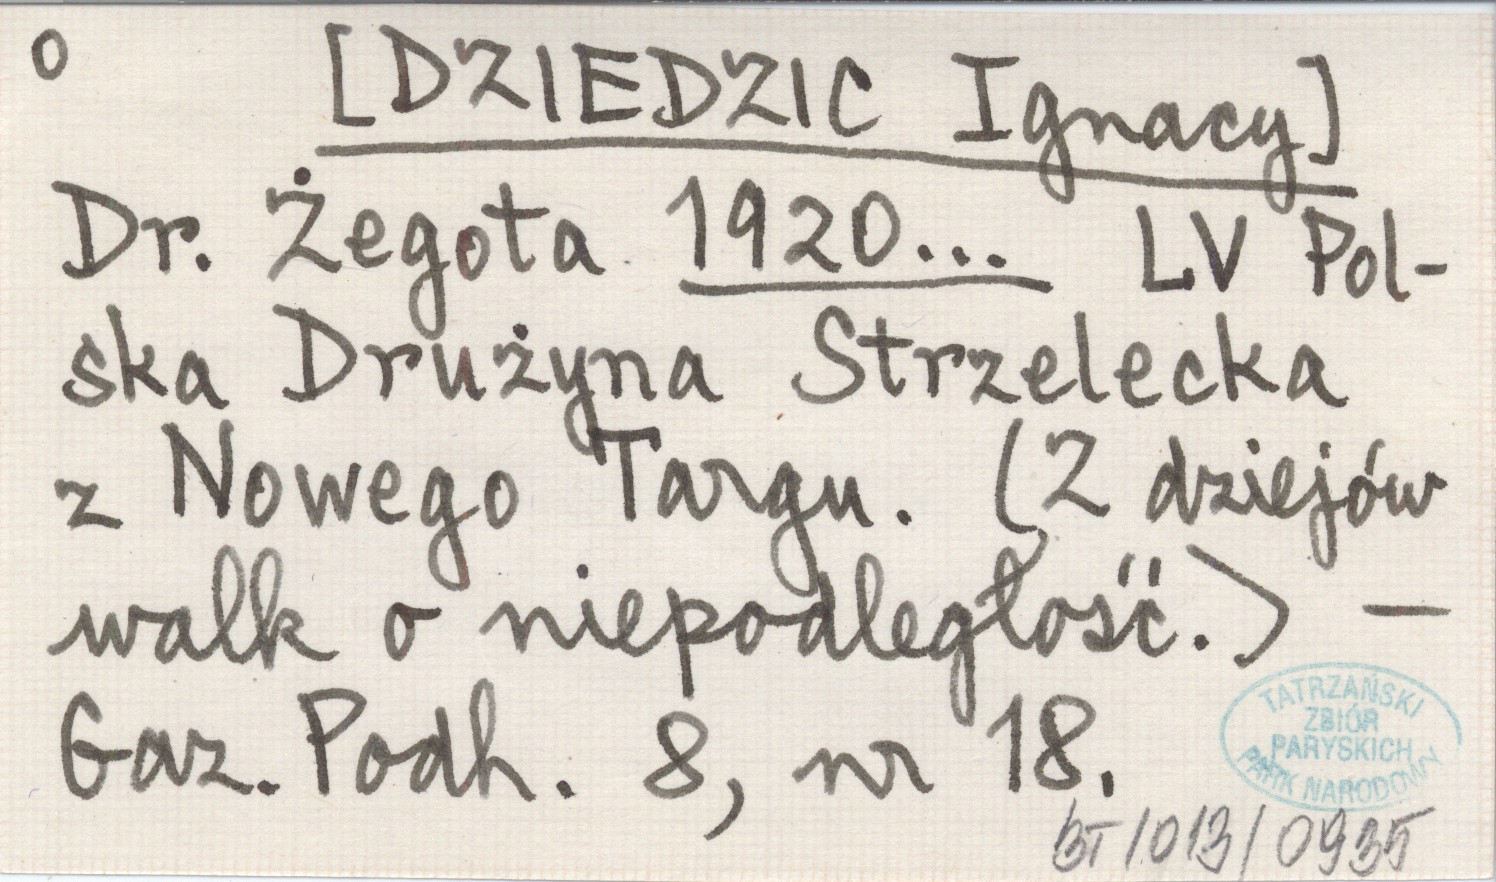 o [DZIEDZIC Ignacy]
Dr. Żegota 1920... LV Pol-
ska Drużyna Strzelecka
z Nowego Targu. (Z dziejów
walk o niepodległość.) —
Gaz. Podh. 8, nr 18.
TATRZAŃSKI
ZBIÓR
PARYSKICH
PARK NARODOWY
BT/013/0935